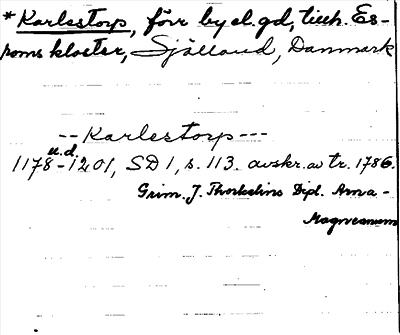 *Karlestorp, förr by el. gd, tillh. Es-
roms kloster, Sjælland, Danmark
--Karlestorp---
u.d.
1178-1201, SD 1, s. 113. avskr. av tr. 1786.
Grim. J. Thorkelins Dipl. Arna-
Magneanum